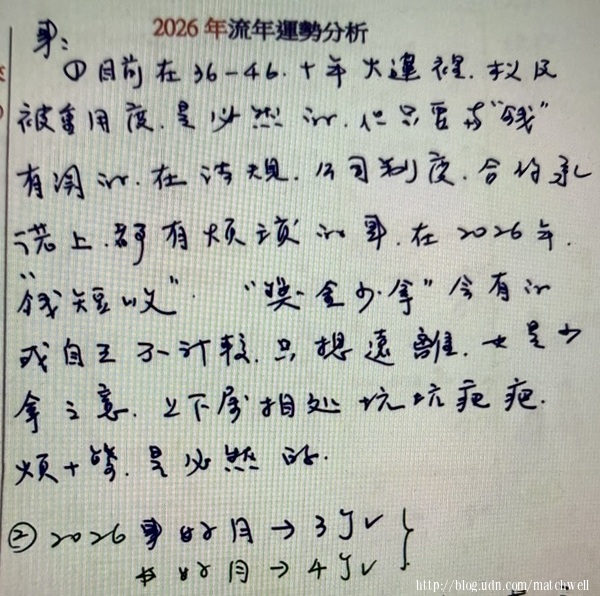 2026年流年運勢分析
事:
①目前在36-46.十年大運裡.权及
被重用度.是必然的.但只要与"钱"
有関的.在法規.公司制度.合约承
诺上.都有烦瑣的事.在2026年.
"钱短收"."奖金少拿"会有的
或自己不计較.只想遠離.也是少
拿之意.上下属相处坑坑疤疤.
烦+勞.是必然的.
②2026事好月→3个V
好月→4个V
http://blog.udn.com/matchwell